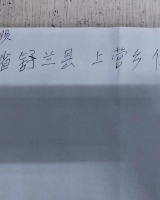 省舒兰县 上营乡